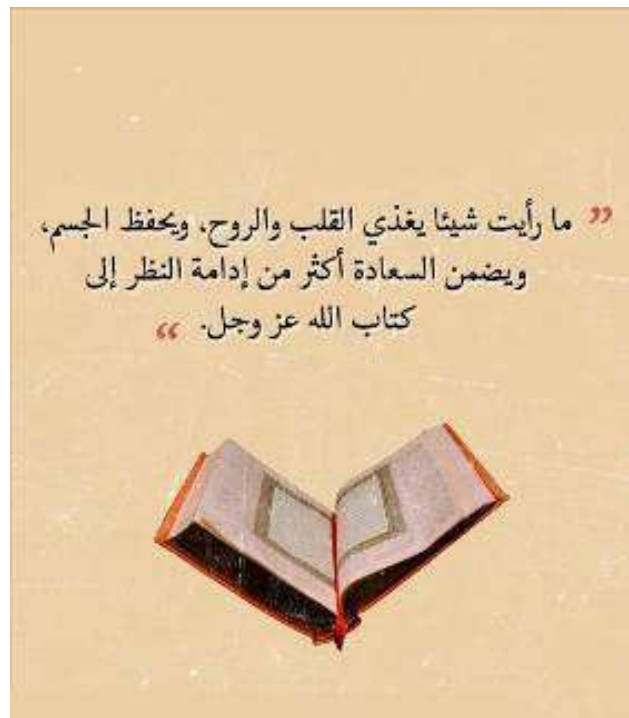 ” ما رأيت شيئا يغذي القلب والروح، ويحفظ الجسم،
ويضمن السعادة أكثر من إدامة النظر إلى
كتاب الله عز وجل. “